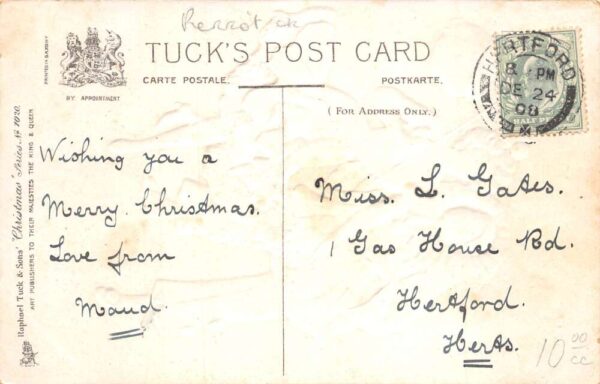 Pierrot
TUCK'S POST CARD
CARTE POSTALE.
POSTKARTE.
BY APPOINTMENT
(FOR ADDRESS ONLY.)
PRINTED IN SAXONY
Raphael Tuck & Sons' "Christmas" Series. Nº 1020.
ART PUBLISHERS TO THEIR MAJESTIES THE KING & QUEEN
HERTFORD
8 PM
DE 24
08
Wishing you a
Merry Christmas.
Love from
Maud.
Miss. L. Gates.
1 Gas House Rd.
Hertford.
Herts.
10 00
cc